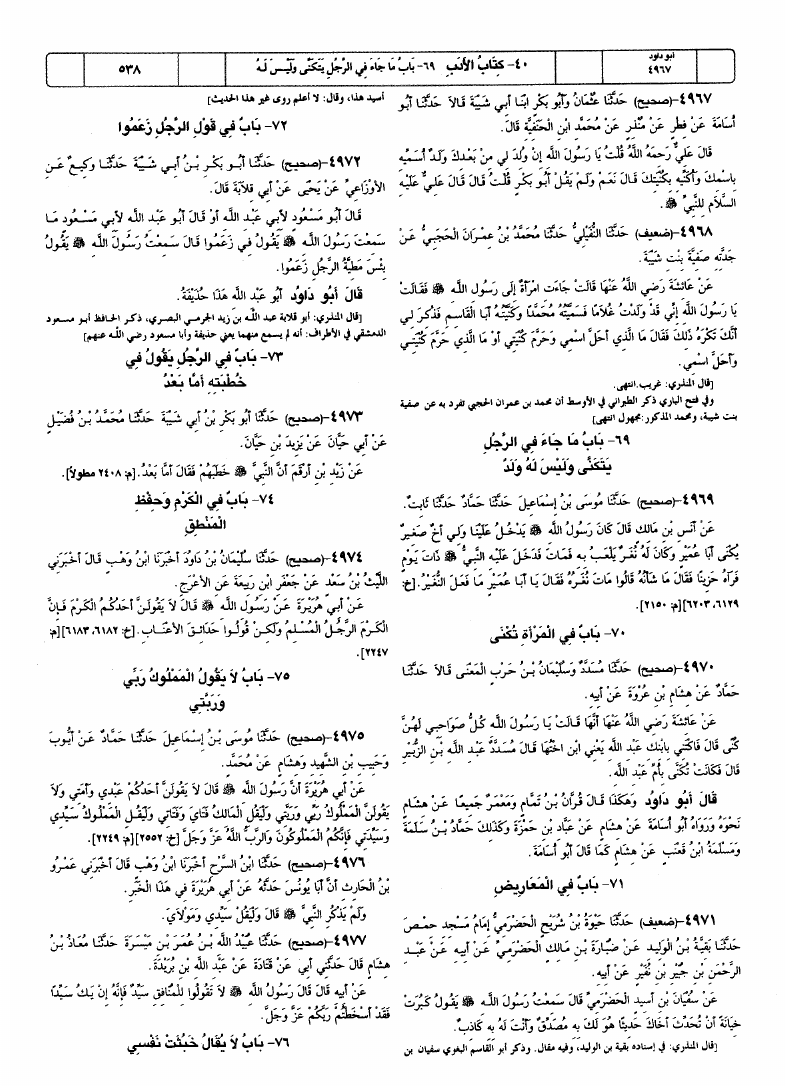 أبو داود
٤٩٦٧
٤٠- كِتَابُ الأَدَبِ
٦٩- بَابُ مَا جَاءَ فِي الرَّجُلِ يَتَكَنَّى وَلَيْسَ لَهُ
٥٣٨
٤٩٦٧-(صحيح) حَدَّثَنَا عُثْمَانُ وَأَبُو بَكْرٍ ابْنَا أَبِي شَيْبَةَ قَالاَ حَدَّثَنَا أَبُو
أُسَامَةَ عَنْ فِطْرٍ عَنْ مُنْذِرٍ عَنْ مُحَمَّدِ ابْنِ الْحَنَفِيَّةِ قَالَ.
قَالَ عَلِيٌّ رَحِمَهُ اللَّهُ قُلْتُ يَا رَسُولَ اللَّهِ إِنْ وُلِدَ لِي مِنْ بَعْدِكَ وَلَدٌ أُسَمِّيهِ
بِاسْمِكَ وَأُكَنِّيهِ بِكُنْيَتِكَ قَالَ نَعَمْ وَلَمْ يَقُلْ أَبُو بَكْرٍ قُلْتُ قَالَ قَالَ عَلِيٌّ عَلَيْهِ
السَّلاَم لِلنَّبِيِّ ﷺ.
٤٩٦٨-(ضعيف) حَدَّثَنَا النُّفَيْلِيُّ حَدَّثَنَا مُحَمَّدُ بْنُ عِمْرَانَ الْحَجَبِيُّ عَنْ
جَدَّتِهِ صَفِيَّةَ بِنْتِ شَيْبَةَ.
عَنْ عَائِشَةَ رَضِيَ اللَّهُ عَنْهَا قَالَتْ جَاءَتِ امْرَأَةٌ إِلَى رَسُولِ اللَّهِ ﷺ فَقَالَتْ
يَا رَسُولَ اللَّهِ إِنِّي قَدْ وَلَدْتُ غُلاَمًا فَسَمَّيْتُهُ مُحَمَّدًا وَكَنَّيْتُهُ أَبَا الْقَاسِمِ فَذُكِرَ لِي
أَنَّكَ تَكْرَهُ ذَلِكَ فَقَالَ مَا الَّذِي أَحَلَّ اسْمِي وَحَرَّمَ كُنْيَتِي أَوْ مَا الَّذِي حَرَّمَ كُنْيَتِي
وَأَحَلَّ اسْمِي.
[قال المنذري: غريب.انتهى.
وفي فتح الباري ذكر الطبراني في الأوسط أن محمد بن عمران الحجبي تفرد به عن صفية
بنت شيبة، ومحمد المذكور:مجهول انتهى]
٦٩- بَابُ مَا جَاءَ فِي الرَّجُلِ
يَتَكَنَّى وَلَيْسَ لَهُ وَلَدٌ
٤٩٦٩-(صحيح) حَدَّثَنَا مُوسَى بْنُ إِسْمَاعِيلَ حَدَّثَنَا حَمَّادٌ حَدَّثَنَا ثَابِتٌ.
عَنْ أَنَسِ بْنِ مَالِكٍ قَالَ كَانَ رَسُولُ اللَّهِ ﷺ يَدْخُلُ عَلَيْنَا وَلِي أَخٌ صَغِيرٌ
يُكْنَى أَبَا عُمَيْرٍ وَكَانَ لَهُ نُغَرٌ يَلْعَبُ بِهِ فَمَاتَ فَدَخَلَ عَلَيْهِ النَّبِيُّ ﷺ ذَاتَ يَوْمٍ
فَرَآهُ حَزِينًا فَقَالَ مَا شَأْنُهُ قَالُوا مَاتَ نُغَرُهُ فَقَالَ يَا أَبَا عُمَيْرٍ مَا فَعَلَ النُّغَيْرُ.[خ:
٦١٢٩، ٦٢٠٣][م: ٢١٥٠].
٧٠- بَابٌ فِي الْمَرْأَةِ تُكْنَى
٤٩٧٠-(صحيح) حَدَّثَنَا مُسَدَّدٌ وَسُلَيْمَانُ بْنُ حَرْبٍ الْمَعْنَى قَالاَ حَدَّثَنَا
حَمَّادٌ عَنْ هِشَامِ بْنِ عُرْوَةَ عَنْ أَبِيهِ.
عَنْ عَائِشَةَ رَضِيَ اللَّهُ عَنْهَا أَنَّهَا قَالَتْ يَا رَسُولَ اللَّهِ كُلُّ صَوَاحِبِي لَهُنَّ
كُنًى قَالَ فَاكْتَنِي بِابْنِكِ عَبْدِ اللَّهِ يَعْنِي ابْنَ اخْتِهَا قَالَ مُسَدَّدٌ عَبْدِ اللَّهِ بْنِ الزُّبَيْرِ
قَالَ فَكَانَتْ تُكَنَّى بِأُمِّ عَبْدِ اللَّهِ.
قَالَ أَبُو دَاوُد وَهَكَذَا قَالَ قُرَّانُ بْنُ تَمَّامٍ وَمَعْمَرٌ جَمِيعًا عَنْ هِشَامٍ
نَحْوَهُ وَرَوَاهُ أَبُو أُسَامَةَ عَنْ هِشَامٍ عَنْ عَبَّادِ بْنِ حَمْزَةَ وَكَذَلِكَ حَمَّادُ بْنُ سَلَمَةَ
وَمَسْلَمَةُ ابْنُ قَعْنَبٍ عَنْ هِشَامٍ كَمَا قَالَ أَبُو أُسَامَةَ.
٧١- بَابٌ فِي الْمَعَارِيضِ
٤٩٧١-(ضعيف) حَدَّثَنَا حَيْوَةُ بْنُ شُرَيْحٍ الْحَضْرَمِيُّ إِمَامُ مَسْجِدِ حِمْصَ
حَدَّثَنَا بَقِيَّةُ بْنُ الْوَلِيدِ عَنْ ضُبَارَةَ بْنِ مَالِكٍ الْحَضْرَمِيِّ عَنْ أَبِيهِ عَنْ عَبْدِ
الرَّحْمَنِ بْنِ جُبَيْرِ بْنِ نُفَيْرٍ عَنْ أَبِيهِ.
عَنْ سُفْيَانَ بْنِ أَسِيدٍ الْحَضْرَمِيِّ قَالَ سَمِعْتُ رَسُولَ اللَّهِ ﷺ يَقُولُ كَبُرَتْ
خِيَانَةً أَنْ تُحَدِّثَ أَخَاكَ حَدِيثًا هُوَ لَكَ بِهِ مُصَدِّقٌ وَأَنْتَ لَهُ بِهِ كَاذِبٌ.
[قال المنذري: في إسناده بقية بن الوليد، وفيه مقال. وذكر أبو القاسم البغوي سفيان بن
أسيد هذا، وقال: لا أعلم روى غير هذا الحديث]
٧٢- بَابٌ فِي قَوْلِ الرَّجُلِ زَعَمُوا
٤٩٧٢-(صحيح) حَدَّثَنَا أَبُو بَكْرِ بْنُ أَبِي شَيْبَةَ حَدَّثَنَا وَكِيعٌ عَنِ
الأَوْزَاعِيِّ عَنْ يَحْيَى عَنْ أَبِي قِلاَبَةَ قَالَ.
قَالَ أَبُو مَسْعُودٍ لأَبِي عَبْدِ اللَّهِ أَوْ قَالَ أَبُو عَبْدِ اللَّهِ لأَبِي مَسْعُودٍ مَا
سَمِعْتَ رَسُولَ اللَّهِ ﷺ يَقُولُ فِي زَعَمُوا قَالَ سَمِعْتُ رَسُولَ اللَّهِ ﷺ يَقُولُ
بِئْسَ مَطِيَّةُ الرَّجُلِ زَعَمُوا.
قَالَ أَبُو دَاوُد أَبُو عَبْدِ اللَّهِ هَذَا حُذَيْفَةُ.
[قال المنذري: أبو قلابة عبد اللَّه بن زيد الجرمي البصري، ذكر الحافظ أبو مسعود
الدمشقي في الأطراف: أنه لم يسمع منهما يعني حذيفة وأبا مسعود رضي اللَّه عنهم]
٧٣- بَابٌ فِي الرَّجُلِ يَقُولُ فِي
خُطْبَتِهِ أَمَّا بَعْدُ
٤٩٧٣-(صحيح) حَدَّثَنَا أَبُو بَكْرِ بْنُ أَبِي شَيْبَةَ حَدَّثَنَا مُحَمَّدُ بْنُ فُضَيْلٍ
عَنْ أَبِي حَيَّانَ عَنْ يَزِيدَ بْنِ حَيَّانَ.
عَنْ زَيْدِ بْنِ أَرْقَمَ أَنَّ النَّبِيَّ ﷺ خَطَبَهُمْ فَقَالَ أَمَّا بَعْدُ.[م: ٢٤٠٨ مطولاً].
٧٤- بَابٌ فِي الْكَرْمِ وَحِفْظِ
الْمَنْطِقِ
٤٩٧٤-(صحيح) حَدَّثَنَا سُلَيْمَانُ بْنُ دَاوُدَ أَخْبَرَنَا ابْنُ وَهْبٍ قَالَ أَخْبَرَنِي
اللَّيْثُ بْنُ سَعْدٍ عَنْ جَعْفَرِ ابْنِ رَبِيعَةَ عَنِ الأَعْرَجِ.
عَنْ أَبِي هُرَيْرَةَ عَنْ رَسُولِ اللَّهِ ﷺ قَالَ لاَ يَقُولَنَّ أَحَدُكُمُ الْكَرْمَ فَإِنَّ
الْكَرْمَ الرَّجُلُ الْمُسْلِمُ وَلَكِنْ قُولُوا حَدَائِقَ الأَعْنَابِ.[خ: ٦١٨٢، ٦١٨٣][م:
٢٢٤٧].
٧٥- بَابُ لاَ يَقُولُ الْمَمْلُوكُ رَبِّي
وَرَبَّتِي
٤٩٧٥-(صحيح) حَدَّثَنَا مُوسَى بْنُ إِسْمَاعِيلَ حَدَّثَنَا حَمَّادٌ عَنْ أَيُّوبَ
وَحَبِيبِ بْنِ الشَّهِيدِ وَهِشَامٍ عَنْ مُحَمَّدٍ.
عَنْ أَبِي هُرَيْرَةَ أَنَّ رَسُولَ اللَّهِ ﷺ قَالَ لاَ يَقُولَنَّ أَحَدُكُمْ عَبْدِي وَأَمَتِي وَلاَ
يَقُولَنَّ الْمَمْلُوكُ رَبِّي وَرَبَّتِي وَلْيَقُلِ الْمَالِكُ فَتَايَ وَفَتَاتِي وَلْيَقُلِ الْمَمْلُوكُ سَيِّدِي
وَسَيِّدَتِي فَإِنَّكُمُ الْمَمْلُوكُونَ وَالرَّبُّ اللَّهُ عَزَّ وَجَلَّ[خ: ٢٥٥٢][م: ٢٢٤٩].
٤٩٧٦-(صحيح) حَدَّثَنَا ابْنُ السَّرْحِ أَخْبَرَنَا ابْنُ وَهْبٍ قَالَ أَخْبَرَنِي عَمْرُو
بْنُ الْحَارِثِ أَنَّ أَبَا يُونُسَ حَدَّثَهُ عَنْ أَبِي هُرَيْرَةَ فِي هَذَا الْخَبَرِ.
وَلَمْ يَذْكُرِ النَّبِيَّ ﷺ قَالَ وَلْيَقُلْ سَيِّدِي وَمَوْلاَيَ.
٤٩٧٧-(صحيح) حَدَّثَنَا عُبَيْدُ اللَّهِ بْنُ عُمَرَ بْنِ مَيْسَرَةَ حَدَّثَنَا مُعَاذُ بْنُ
هِشَامٍ قَالَ حَدَّثَنِي أَبِي عَنْ قَتَادَةَ عَنْ عَبْدِ اللَّهِ بْنِ بُرَيْدَةَ.
عَنْ أَبِيهِ قَالَ قَالَ رَسُولُ اللَّهِ ﷺ لاَ تَقُولُوا لِلْمُنَافِقِ سَيِّدٌ فَإِنَّهُ إِنْ يَكُ سَيِّدًا
فَقَدْ أَسْخَطْتُمْ رَبَّكُمْ عَزَّ وَجَلَّ.
٧٦- بَابُ لاَ يُقَالُ خَبُثَتْ نَفْسِي